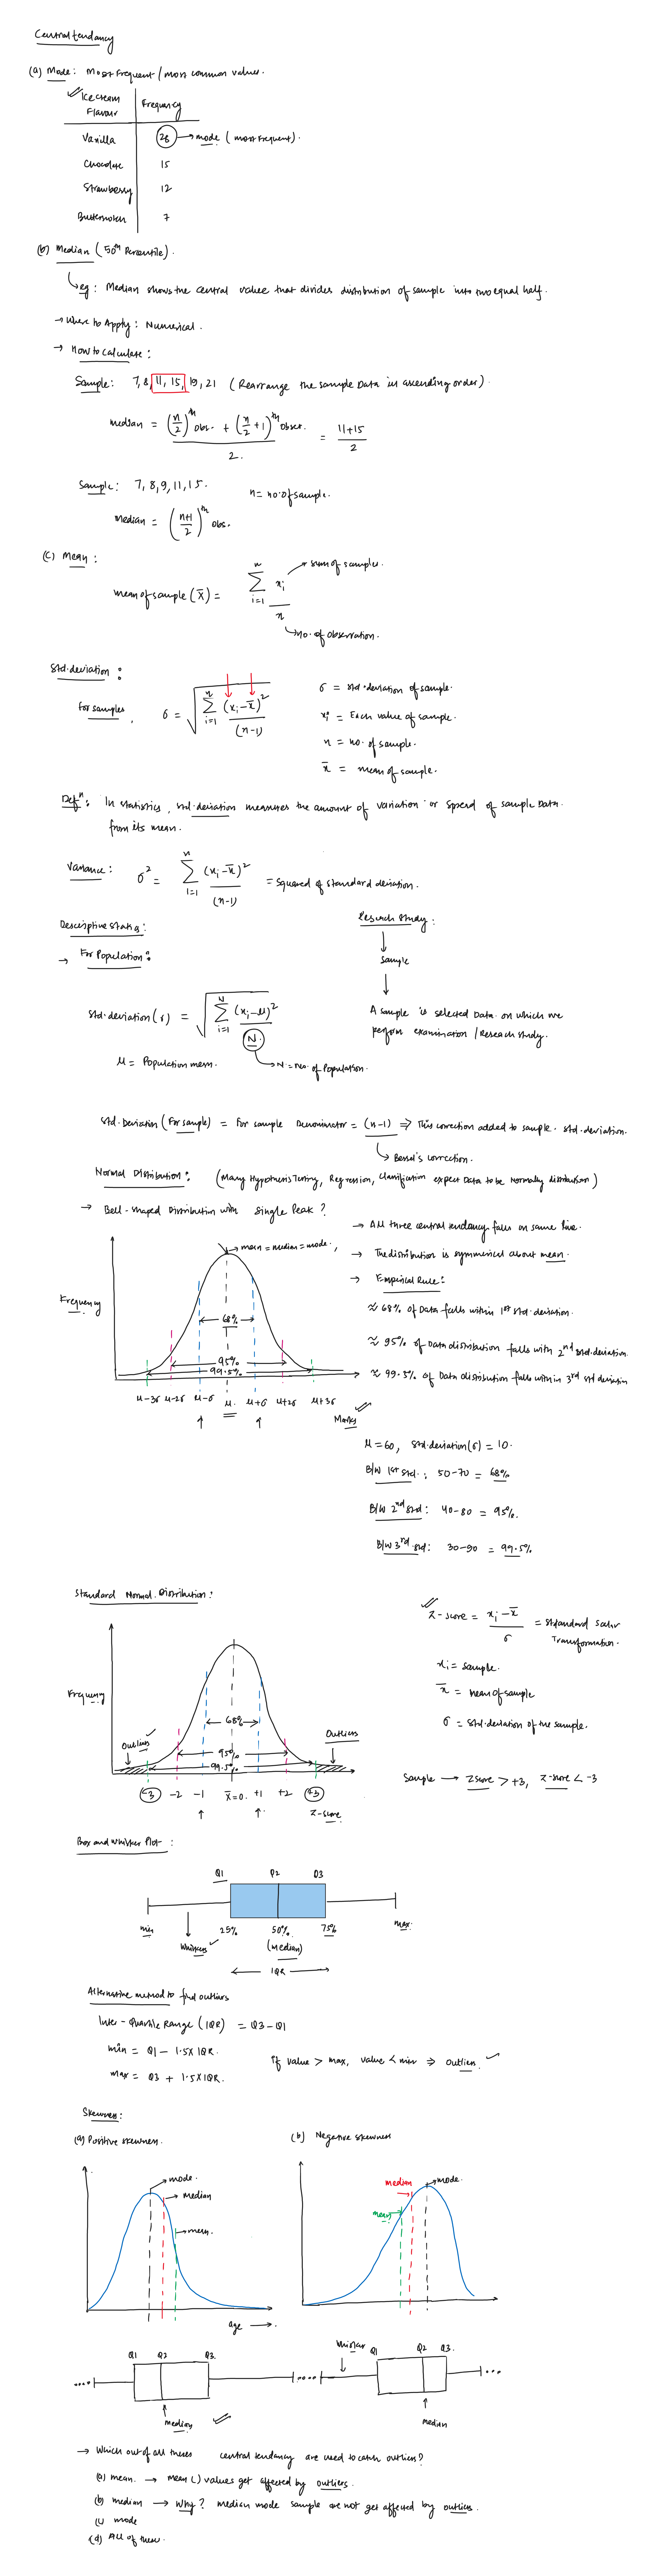 Central tendancy
(a) Mode: Most frequent / most common values.
Ice cream Flavour | Frequency
Vanilla 28 → mode (most frequent).
Chocolate 15
Strawberry 12
Butterscotch 7
(b) Median (50th Percentile).
eg: Median shows the central value that divides distribution of sample into two equal half.
→ Where to Apply: Numerical.
→ How to calculate:
Sample: 7, 8, 11, 15, 19, 21 (Rearrange the sample Data in ascending order).
median = ((n/2)th obs. + (n/2 + 1)th obser.) / 2. = (11+15)/2
Sample: 7, 8, 9, 11, 15. n = no. of sample.
median = ((n+1)/2)th obs.
(C) Mean:
mean of sample (x̄) = Σ i=1 n xi / n
sum of samples.
no. of observation.
Std. deviation:
For samples, σ = √ Σ i=1 n (xi - x̄)² / (n-1)
σ = std. deviation of sample.
xi = Each value of sample.
n = no. of sample.
x̄ = mean of sample.
Defn: In statistics, std. deviation measures the amount of variation or spread of sample Data
from its mean.
Variance: σ² = Σ i=1 n (xi - x̄)² / (n-1) = squared of standard deviation.
Descriptive Stats:
→ For Population:
Research Study:
sample
A sample is selected Data on which we
perform examination / Reseach study.
Std. deviation (σ) = √ Σ i=1 N (xi - μ)² / N.
μ = Population mean. → N = no. of Population.
Std. Deviation (For sample) = For sample Denominator = (n-1) ⇒ This correction added to sample std. deviation.
Bessel's correction.
Normal Distribution: (Many Hypothesis Testing, Regression, classification expect Data to be Normally distribution)
→ Bell-shaped Distribution with single Peak?
→ mean = median = mode.
Frequency
68%
95%
99.5%
μ-3σ μ-2σ μ-σ μ. μ+σ μ+2σ μ+3σ
Marks
→ All three central tendancy falls on same line.
→ The distribution is symmerical about mean.
→ Empirical Rule:
≈ 68% of Data falls within 1st std. deviation.
≈ 95% of Data distribution falls with 2nd std. deviation
≈ 99.5% of Data distribution falls within 3rd std deviation
μ = 60, std. deviation (σ) = 10.
B/W 1st std.: 50-70 = 68%
B/W 2nd std: 40-80 = 95%.
B/W 3rd std: 30-90 = 99.5%
Standard Normal Distribution:
Frequency
Outliers
Outliers
68%
95%
99.5%
-3 -2 -1 x̄=0. +1 +2 +3
Z-score
Z-score = (xi - x̄) / σ = standard scalar
Transformation.
xi = sample.
x̄ = mean of sample
σ = std. deviation of the sample.
Sample → Zscore > +3, Z-score < -3
Box and Whisker Plot:
Q1 Q2 Q3
min 25% 50% 75% max.
Whiskers (median)
IQR
Alternative method to find outliers
Inter-Quartile Range (IQR) = Q3 - Q1
min = Q1 - 1.5 x IQR.
max = Q3 + 1.5 x IQR.
if value > max, value < min ⇒ outlier.
Skewness:
(a) Positive skewness.
mode.
median
mean.
age →
(b) Negative skewness
median
mode.
mean
Q1 Q2 Q3.
median
Whisker
Q1 Q2 Q3.
median
→ Which out of all theses central tendancy are used to catch outliers?
(a) mean. → mean () values get affected by outliers.
(b) median → Why? median mode sample are not get affected by outliers.
(c) mode
(d) All of these.